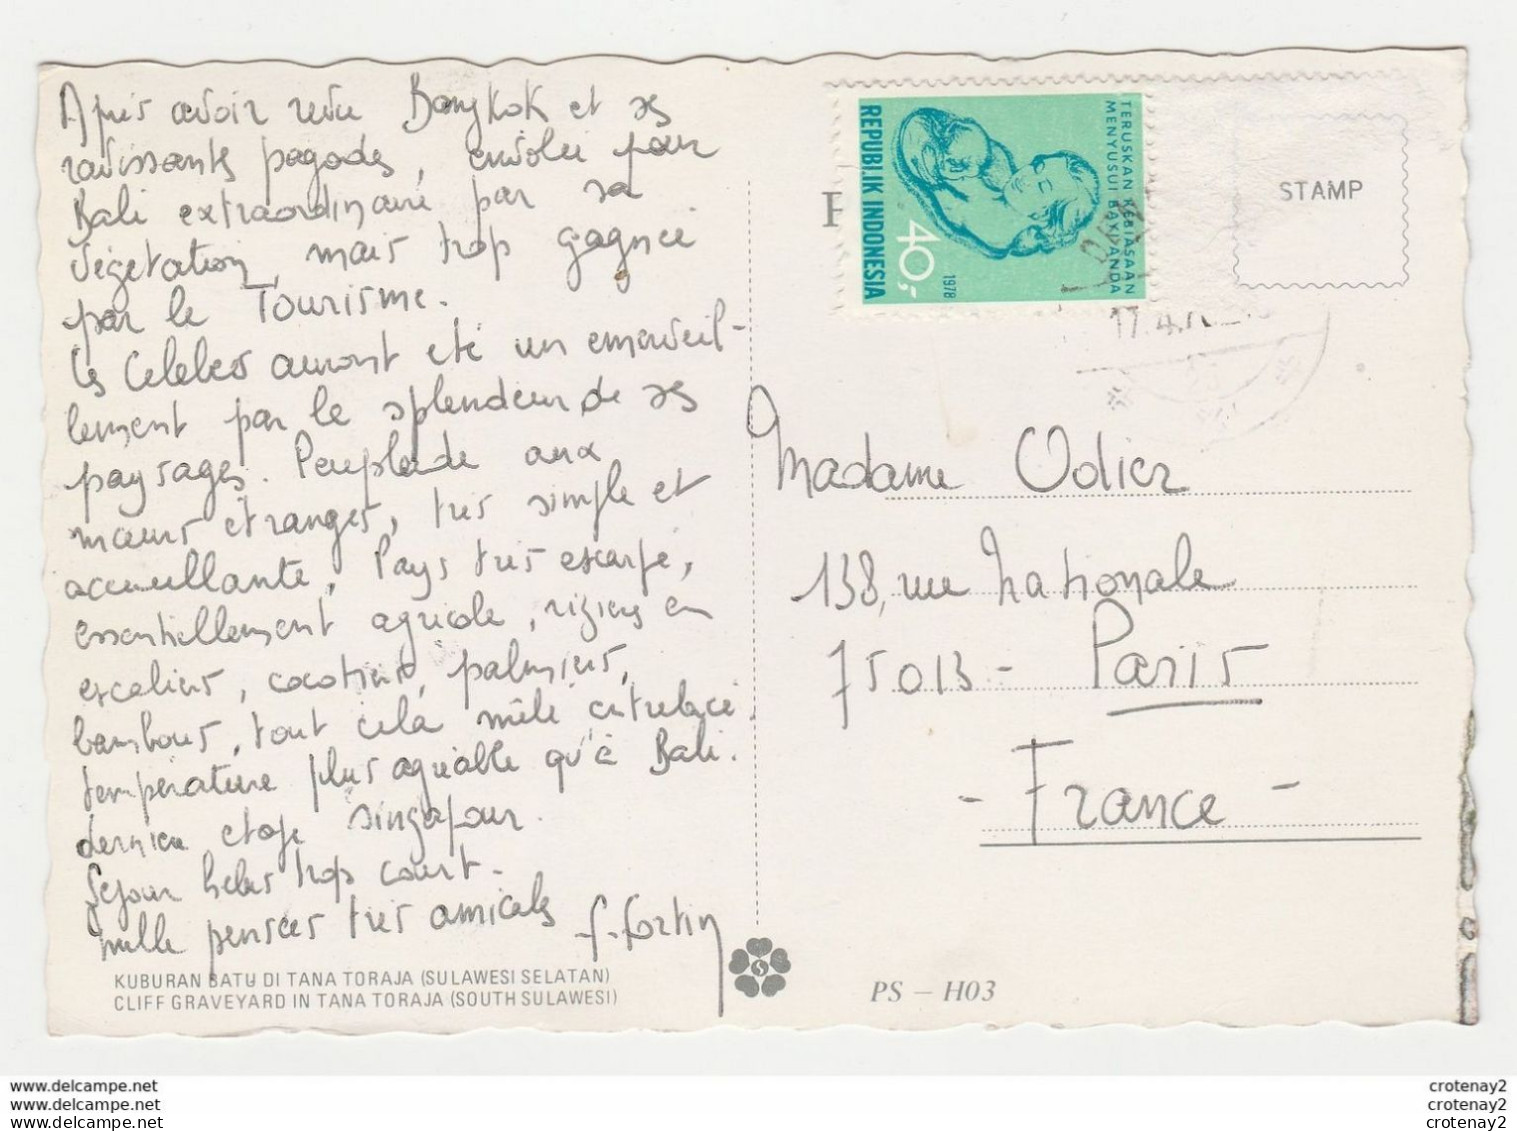 Après avoir revu Bangkok et ses
ravissantes pagodes, envolée pour
Bali extraordinaire par sa
végétation, mais trop gagnée
par le Tourisme.
Les Celebes auront été un émerveil-
lement par la splendeur de ses
paysages. Peuplade aux
mœurs étranges, très simple et
accueillante, Pays très escarpé,
essentiellement agricole, rizières en
escaliers, cocotiers, palmiers,
bambous, tout cela mêlé entrelacé.
température plus agréable qu'à Bali.
dernière étape Singapour.
Séjour hélas trop court.
mille pensées très amicales F. Fortin
KUBURAN BATU DI TANA TORAJA (SULAWESI SELATAN)
CLIFF GRAVEYARD IN TANA TORAJA (SOUTH SULAWESI)
TERUSKAN KEBIASAAN
MENYUSUI BAYI ANDA
REPUBLIK INDONESIA
40,-
1978
STAMP
P
17.4.
Madame Odier
138, rue Nationale
75013 - Paris
- France -
PS – H03
www.delcampe.net
www.delcampe.net
www.delcampe.net
crotenay2
crotenay2
crotenay2